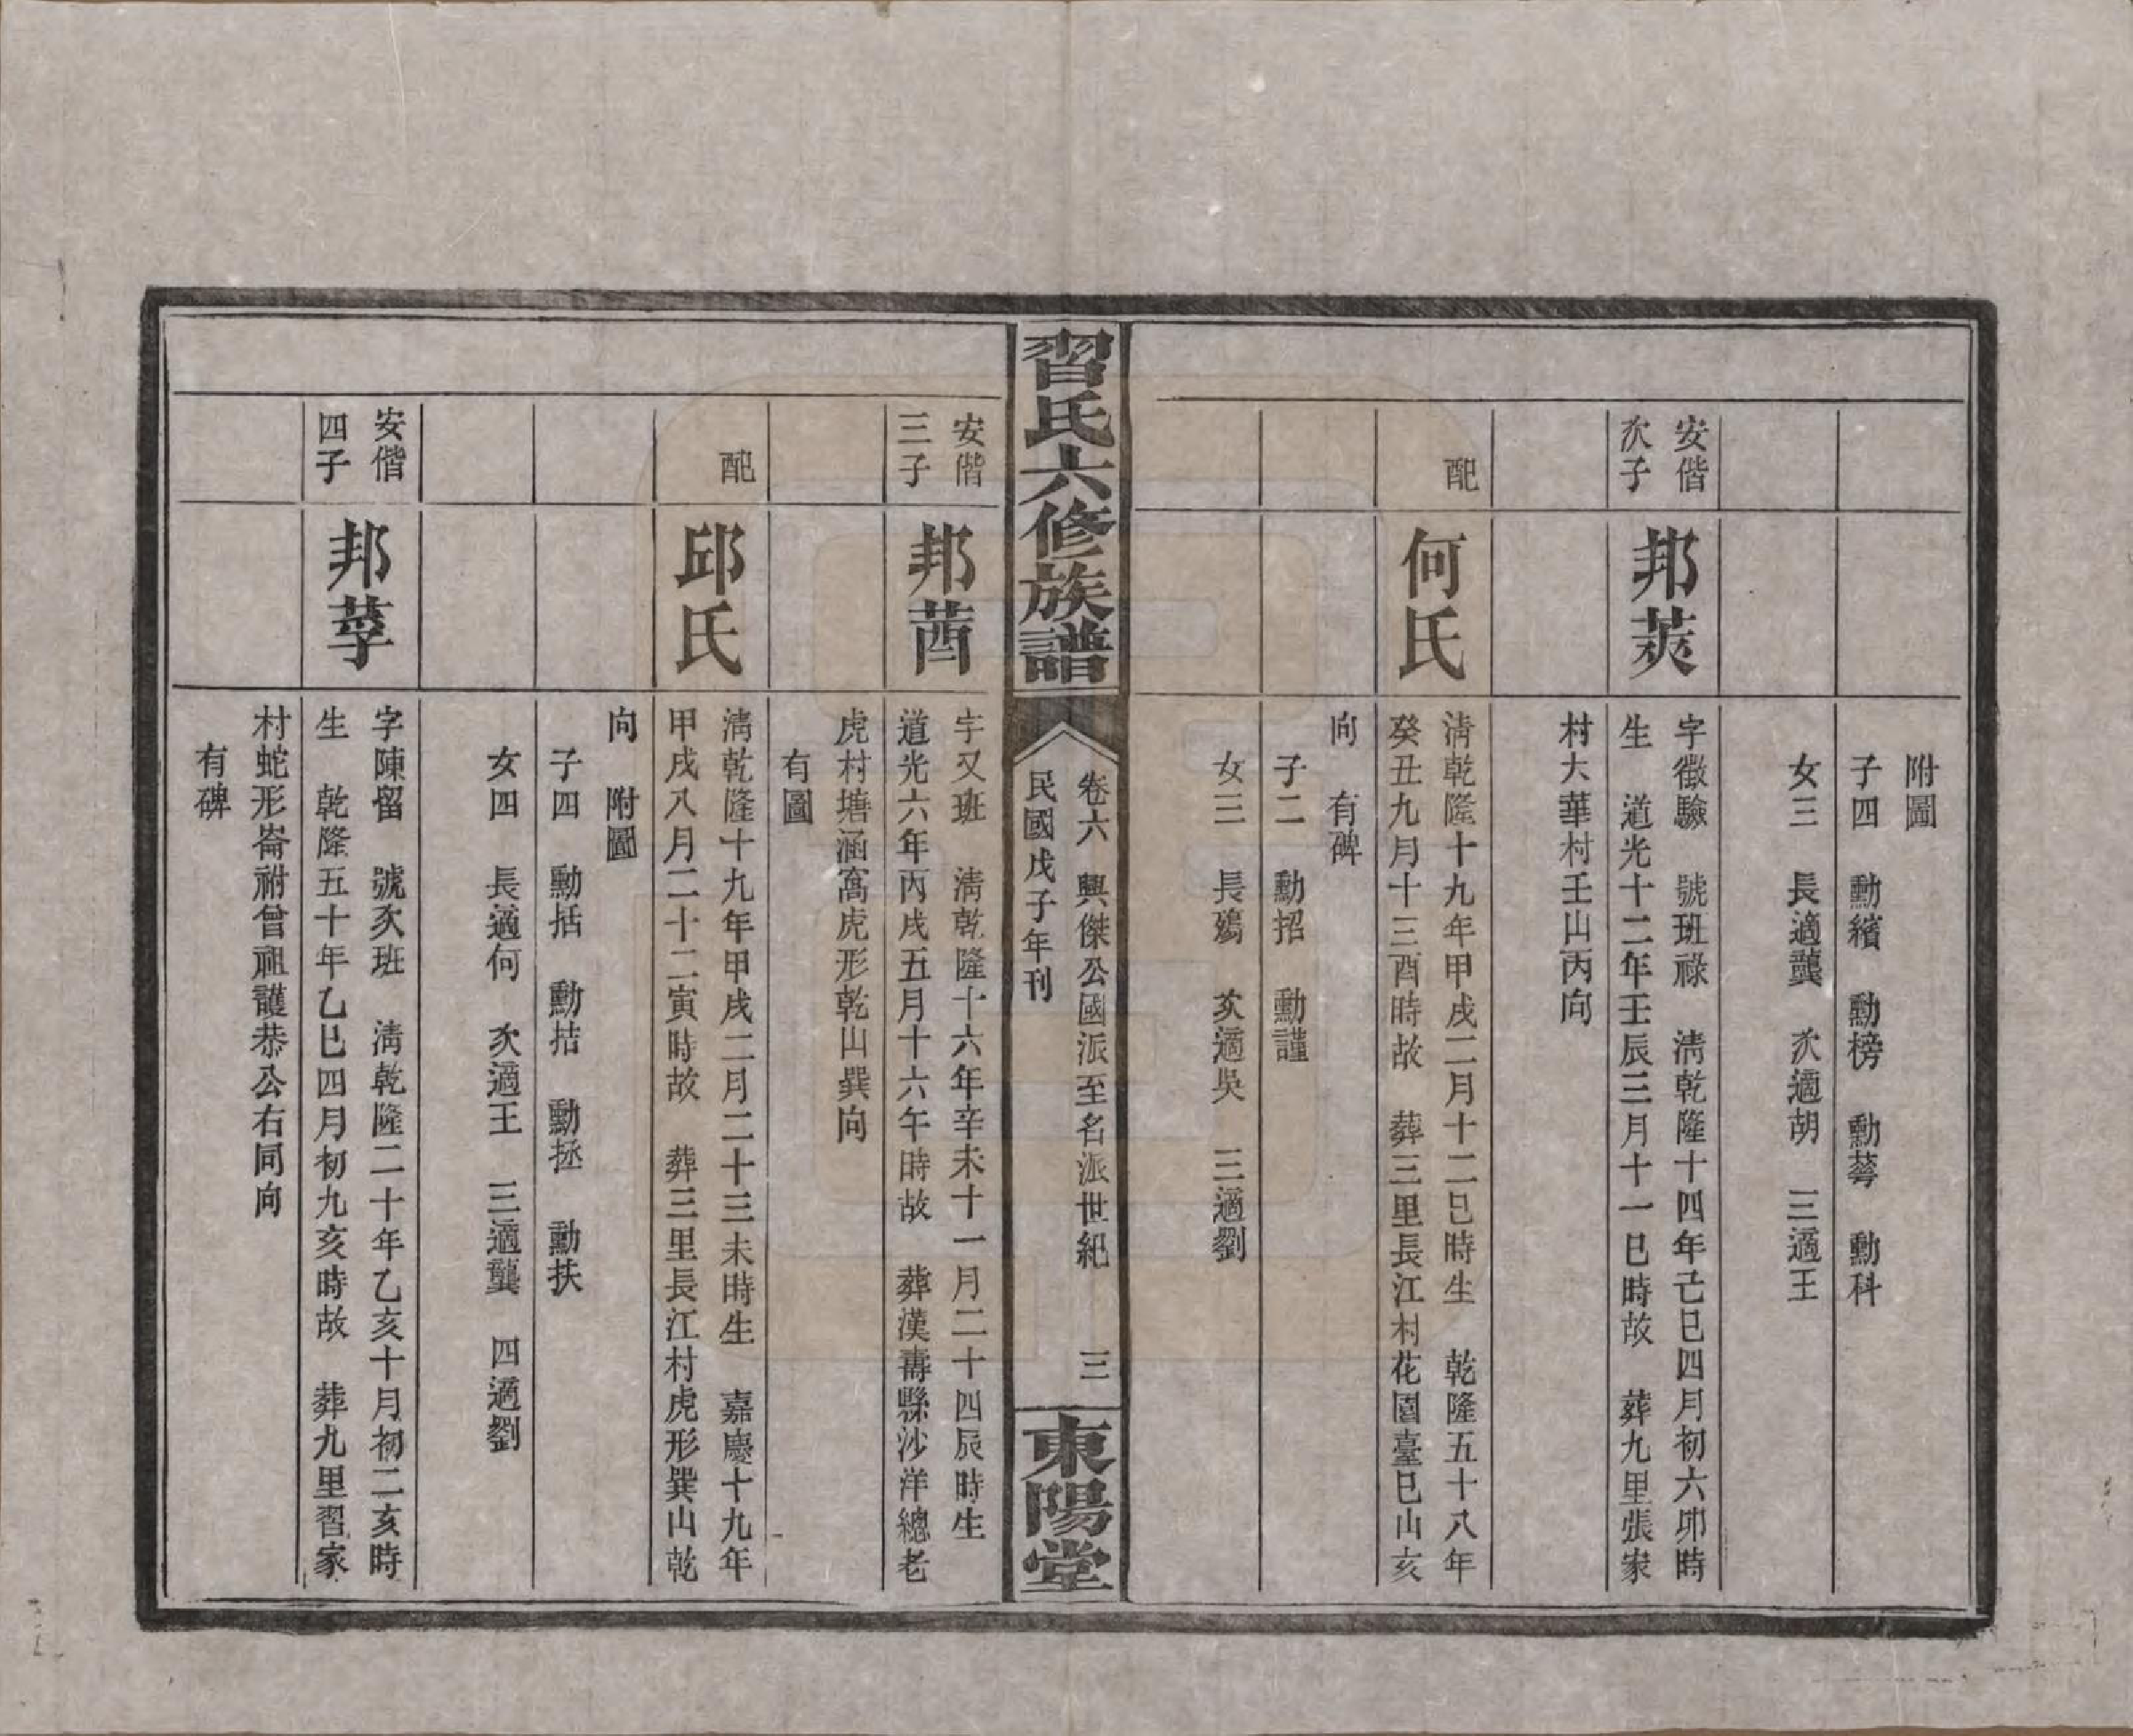 附圖
子四 勳繽 勳榜 勳蕚 勳科
女三 長適龔 次適胡 三適王
安偕
次子
邦莢
字徵驗 號班祿 淸乾隆十四年己巳四月初六卯時
生 道光十二年壬辰三月十一巳時故 葬九里張家
村大華村壬山丙向
配
何氏
淸乾隆十九年甲戌二月十二巳時生 乾隆五十八年
癸丑九月十三酉時故 葬三里長江村花園臺巳山亥
向 有碑
子二 勳招 勳謹
女三 長殤 次適吳 三適劉
習氏六修族譜
卷六 興傑公國派至名派世紀 三
民國戊子年刊
東陽堂
安偕
三子
邦莤
字又班 淸乾隆十六年辛未十一月二十四辰時生
道光六年丙戌五月十六午時故 葬漢壽縣沙洋總老
虎村塘涵窩虎形乾山巽向
有圖
配
邱氏
淸乾隆十九年甲戌二月二十三未時生 嘉慶十九年
甲戌八月二十二寅時故 葬三里長江村虎形巽山乾
向 附圖
子四 勳括 勳拮 勳拯 勳扶
女四 長適何 次適王 三適龔 四適劉
安偕
四子
邦莩
字陳留 號次班 淸乾隆二十年乙亥十月初二亥時
生 乾隆五十年乙巳四月初九亥時故 葬九里習家
村蛇形崙祔曾祖護恭公右同向
有碑